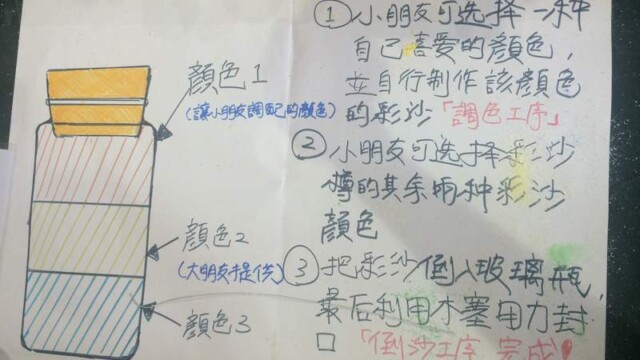 顏色1
(讓小朋友調配的顏色)
顏色2
(大朋友提供)
顏色3
① 小朋友可选择一种
自己喜爱的顏色，
並自行制作該顏色
的彩沙「調色工序」
② 小朋友可选择彩沙
樽的其余兩种彩沙
顏色
③ 把彩沙倒入玻璃瓶，
最后利用木塞用力封
口「倒沙工序 完成